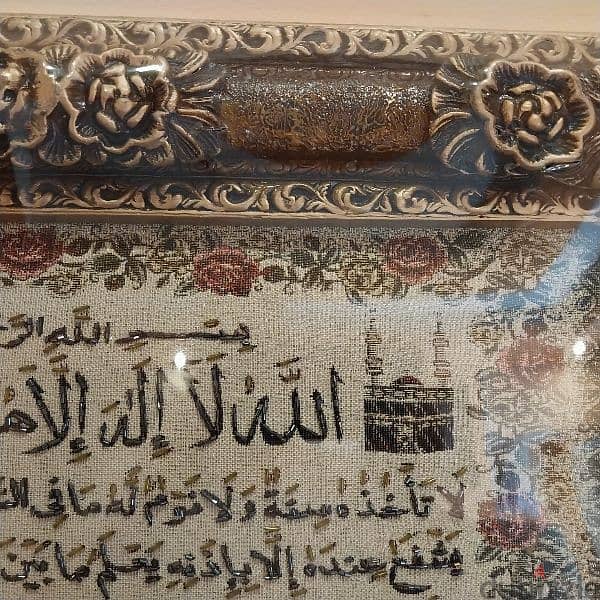 بِسْمِ اللَّهِ
اللَّهُ لَا إِلَٰهَ إِلَّا
لَا تَأْخُذُهُ سِنَةٌ وَلَا نَوْمٌ لَهُ مَا فِي
يَشْفَعُ عِنْدَهُ إِلَّا بِإِذْنِهِ يَعْلَمُ مَا بَيْنَ